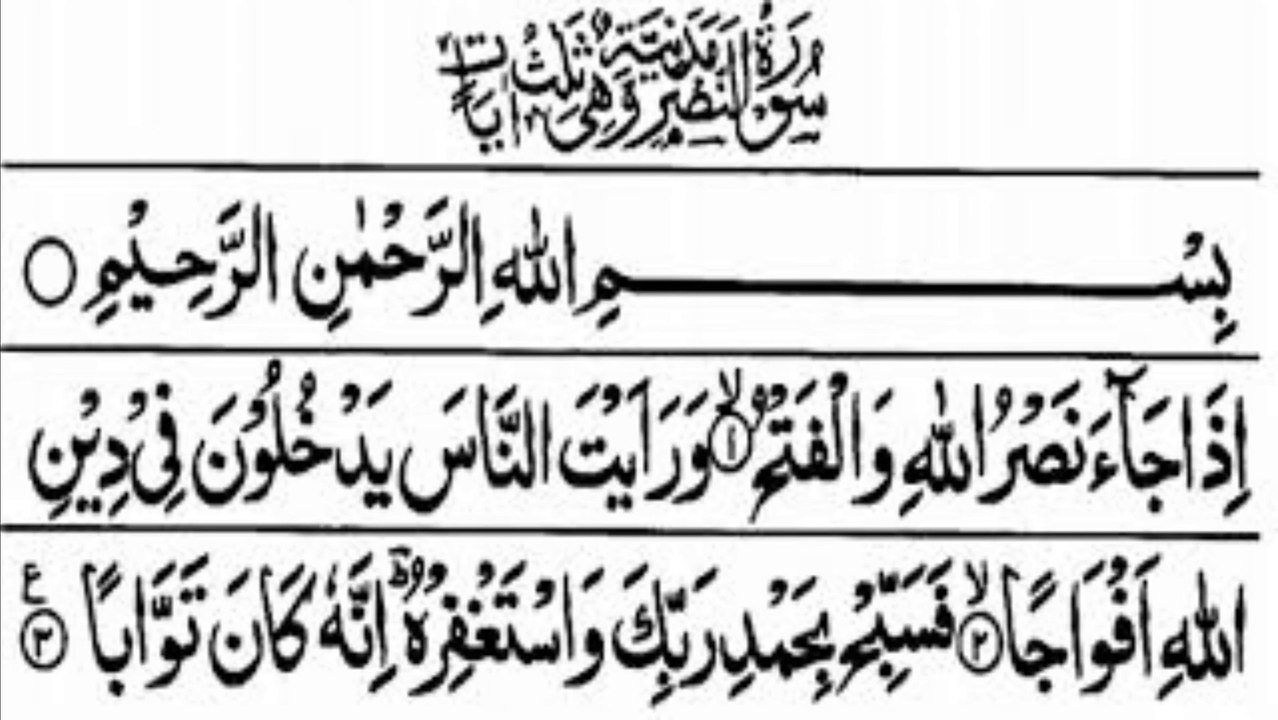 سُوْرَةُ النَّصْرِ مَدَنِيَّةٌ وَّهِيَ ثَلٰثُ اٰيَاتٍ
بِسْمِ اللهِ الرَّحْمٰنِ الرَّحِيْمِ ○
اِذَا جَآءَ نَصْرُ اللهِ وَالْفَتْحُ ۙ﴿۱﴾ وَرَاَيْتَ النَّاسَ يَدْخُلُوْنَ فِيْ دِيْنِ
اللهِ اَفْوَاجًا ۙ﴿۲﴾ فَسَبِّحْ بِحَمْدِ رَبِّكَ وَاسْتَغْفِرْهُ ؕ اِنَّهٗ كَانَ تَوَّابًا ﴿۳﴾ ع